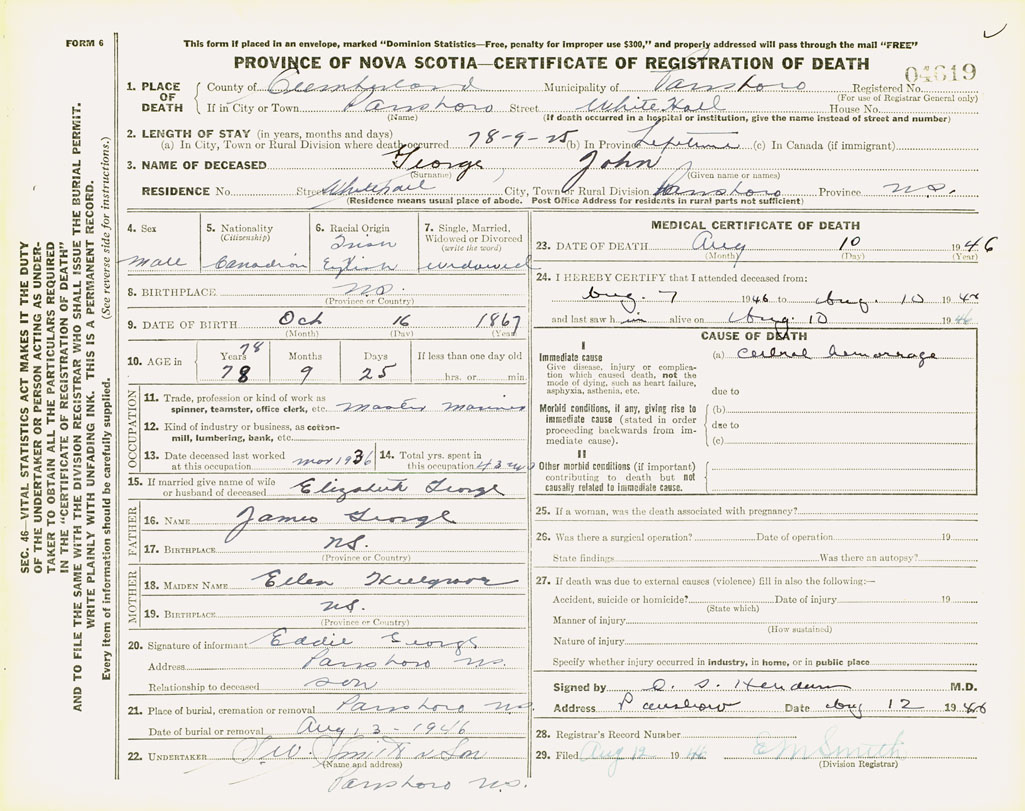 FORM 6
This form if placed in an envelope, marked "Dominion Statistics—Free, penalty for improper use $300," and properly addressed will pass through the mail "FREE"
PROVINCE OF NOVA SCOTIA—CERTIFICATE OF REGISTRATION OF DEATH
04619
1. PLACE OF DEATH
County of Cumberland Municipality of Parrsboro Registered No.
(For use of Registrar General only)
If in City or Town Parrsboro Street White Hall House No.
(Name) (If death occurred in a hospital or institution, give the name instead of street and number)
2. LENGTH OF STAY (in years, months and days)
(a) In City, Town or Rural Division where death occurred 78-9-25 (b) In Province Lifetime (c) In Canada (if immigrant)
3. NAME OF DECEASED George, John
(Surname) (Given name or names)
RESIDENCE No. Street Whitehall City, Town or Rural Division Parrsboro Province N.S.
(Residence means usual place of abode. Post Office Address for residents in rural parts not sufficient)
4. Sex
male
5. Nationality
(Citizenship)
Canadian
6. Racial Origin
Irish
English
7. Single, Married, Widowed or Divorced
(write the word)
widowed
8. BIRTHPLACE N.S.
(Province or Country)
9. DATE OF BIRTH Oct 16 1867
(Month) (Day) (Year)
10. AGE in
Years 78
78
Months
9
Days
25
If less than one day old
hrs. or min.
OCCUPATION
11. Trade, profession or kind of work as spinner, teamster, office clerk, etc. Master Mariner
12. Kind of industry or business, as cotton-mill, lumbering, bank, etc.
13. Date deceased last worked at this occupation Mar 1936
14. Total yrs. spent in this occupation 43
15. If married give name of wife or husband of deceased Elizabeth George
FATHER
16. NAME James George
17. BIRTHPLACE N.S.
(Province or Country)
MOTHER
18. MAIDEN NAME Ellen
19. BIRTHPLACE N.S.
(Province or Country)
20. Signature of informant Eddie George
Address Parrsboro N.S.
Relationship to deceased son
21. Place of burial, cremation or removal Parrsboro N.S.
Date of burial or removal Aug 13 - 1946
22. UNDERTAKER Smith & Son
(Name and address)
Parrsboro N.S.
MEDICAL CERTIFICATE OF DEATH
23. DATE OF DEATH Aug 10 1946
(Month) (Day) (Year)
24. I HEREBY CERTIFY that I attended deceased from:
Aug. 7 1946 to Aug. 10 1946
and last saw him alive on Aug. 10 1946
CAUSE OF DEATH
I
Immediate cause
Give disease, injury or complication which caused death, not the mode of dying, such as heart failure, asphyxia, asthenia, etc.
(a) cerbral hemorrage
due to
Morbid conditions, if any, giving rise to immediate cause (stated in order proceeding backwards from immediate cause).
(b)
due to
(c)
II
Other morbid conditions (if important) contributing to death but not causally related to immediate cause.
25. If a woman, was the death associated with pregnancy?
26. Was there a surgical operation? Date of operation 19
State findings Was there an autopsy?
27. If death was due to external causes (violence) fill in also the following:—
Accident, suicide or homicide? Date of injury 19
(State which)
Manner of injury
(How sustained)
Nature of injury
Specify whether injury occurred in industry, in home, or in public place
Signed by M.D.
Address Parrsboro Date Aug 12 1946
28. Registrar's Record Number
29. Filed Aug 12 1946 E M Smith
(Division Registrar)
SEC. 46—VITAL STATISTICS ACT MAKES IT THE DUTY
OF THE UNDERTAKER OR PERSON ACTING AS UNDER-
TAKER TO OBTAIN ALL THE PARTICULARS REQUIRED
IN THE "CERTIFICATE OF REGISTRATION OF DEATH"
AND TO FILE THE SAME WITH THE DIVISION REGISTRAR WHO SHALL ISSUE THE BURIAL PERMIT.
WRITE PLAINLY WITH UNFADING INK. THIS IS A PERMANENT RECORD.
Every item of information should be carefully supplied. (See reverse side for instructions.)